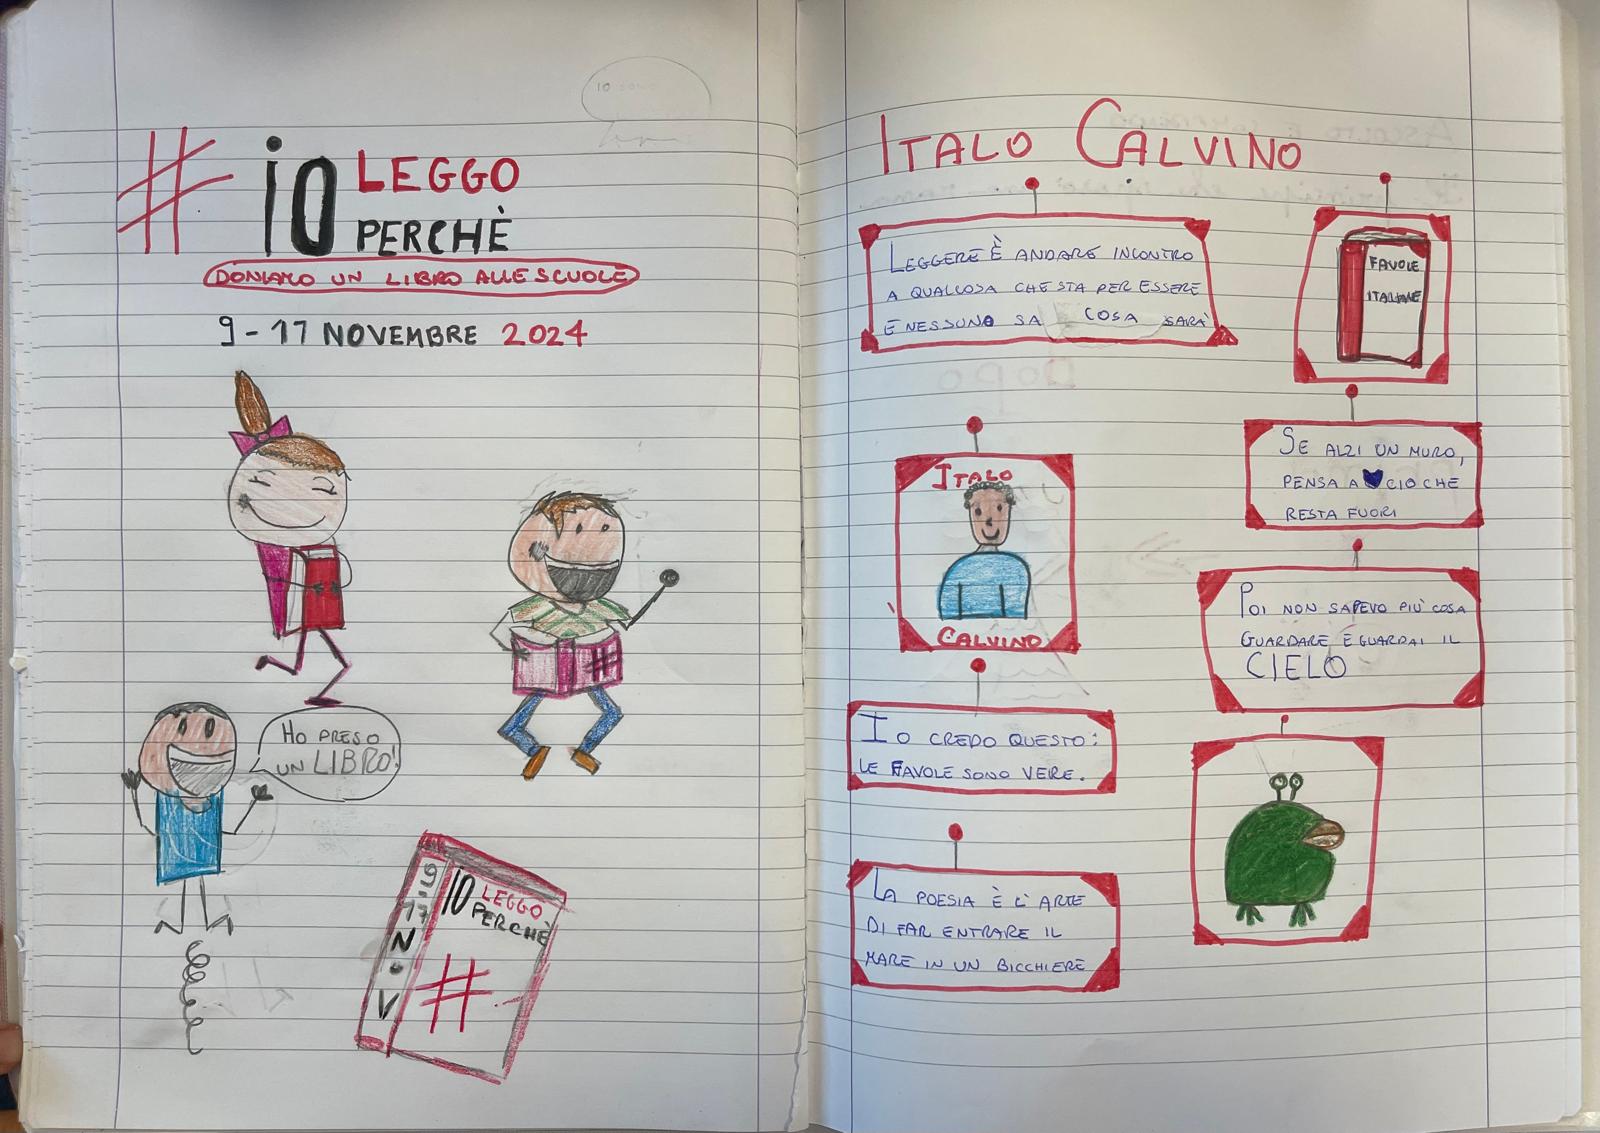 # io LEGGO
PERCHÈ
DONIAMO UN LIBRO ALLE SCUOLE
9-17 NOVEMBRE 2024
HO PRESO
UN LIBRO!
9-17 NOV
IO LEGGO
PERCHÈ
#
IO SONO
ITALO CALVINO
LEGGERE È ANDARE INCONTRO
A QUALCOSA CHE STA PER ESSERE
E NESSUNO SA COSA SARÀ
FAVOLE
ITALIANE
ITALO
CALVINO
SE ALZI UN MURO,
PENSA A CIO CHE
RESTA FUORI
POI NON SAPEVO PIÙ COSA
GUARDARE E GUARDAI IL
CIELO
IO CREDO QUESTO:
LE FAVOLE SONO VERE.
LA POESIA È L'ARTE
DI FAR ENTRARE IL
MARE IN UN BICCHIERE